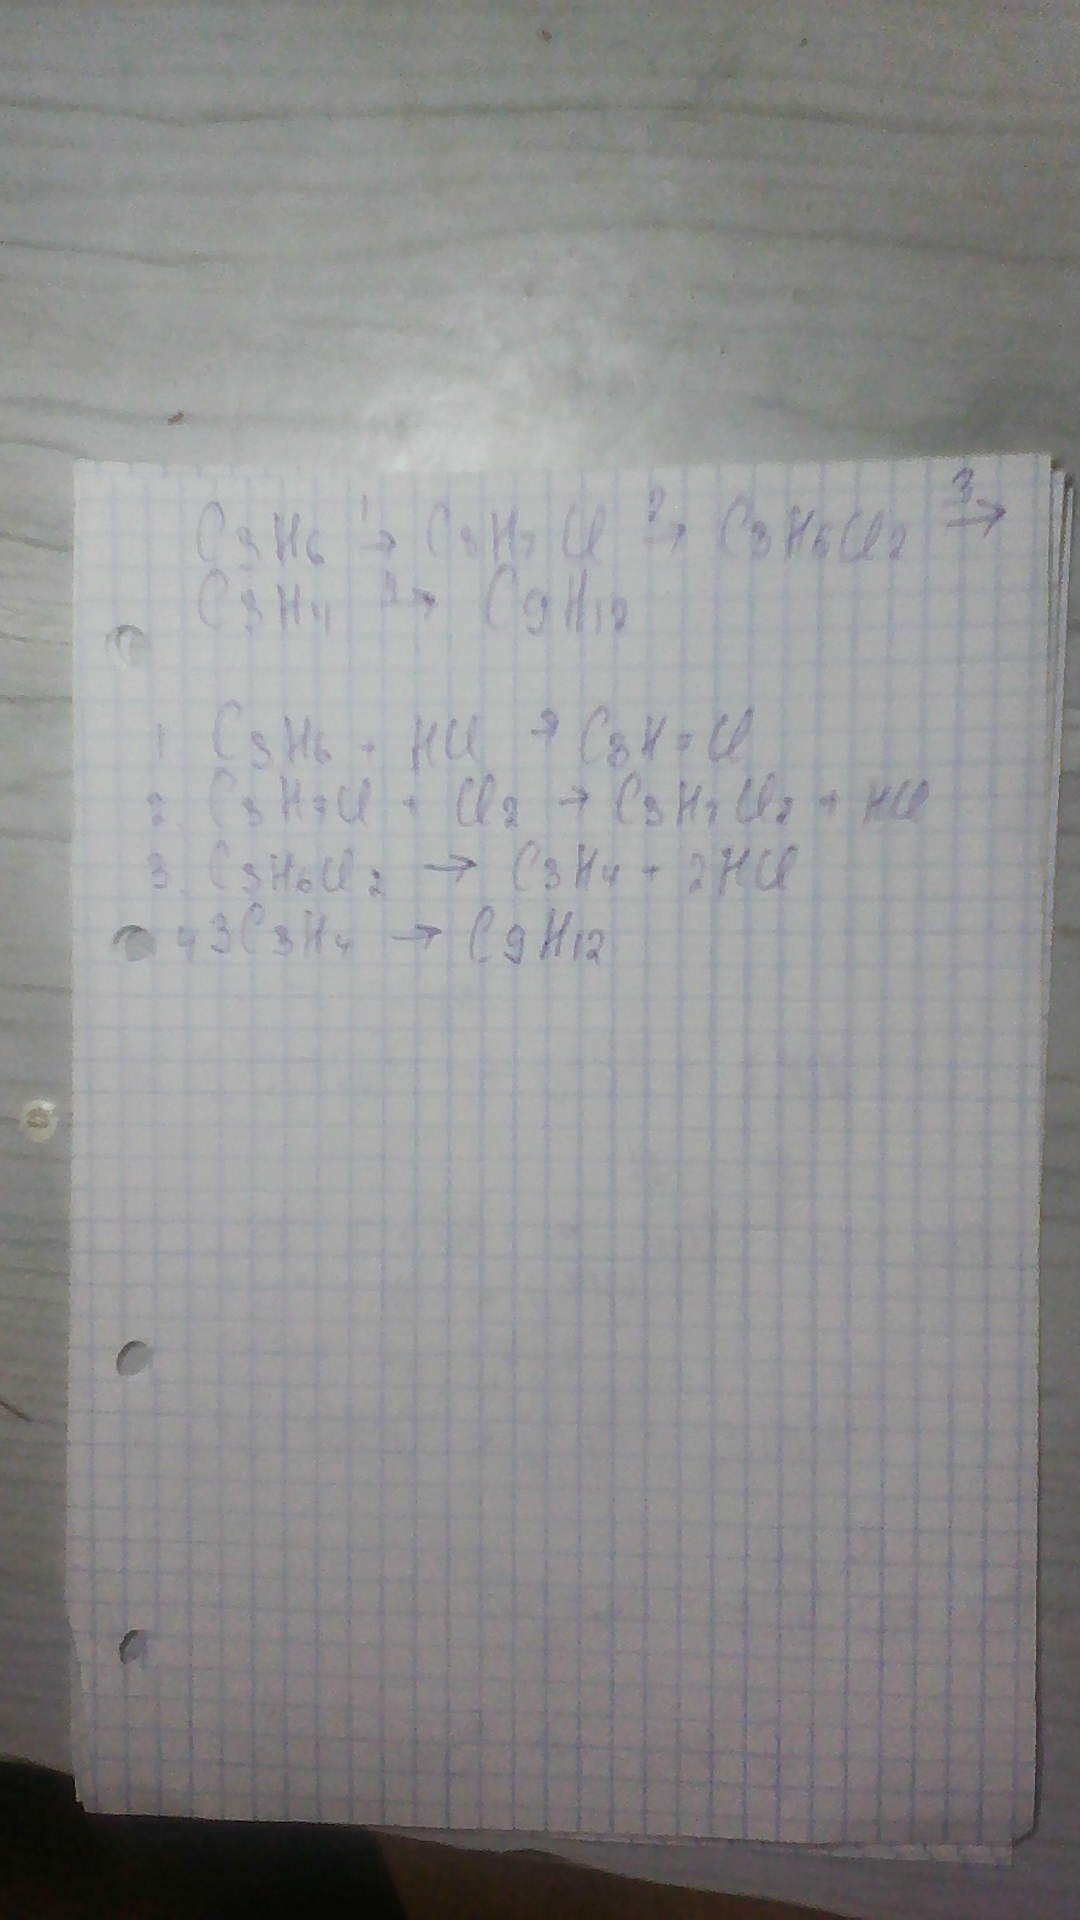 C3H6 1→ C3H7Cl 2→ C3H6Cl2 3→
C3H4 4→ C9H12
1. C3H6 + HCl → C3H7Cl
2. C3H7Cl + Cl2 → C3H7Cl2 + HCl
3. C3H6Cl2 → C3H4 + 2HCl
4 3C3H4 → C9H12